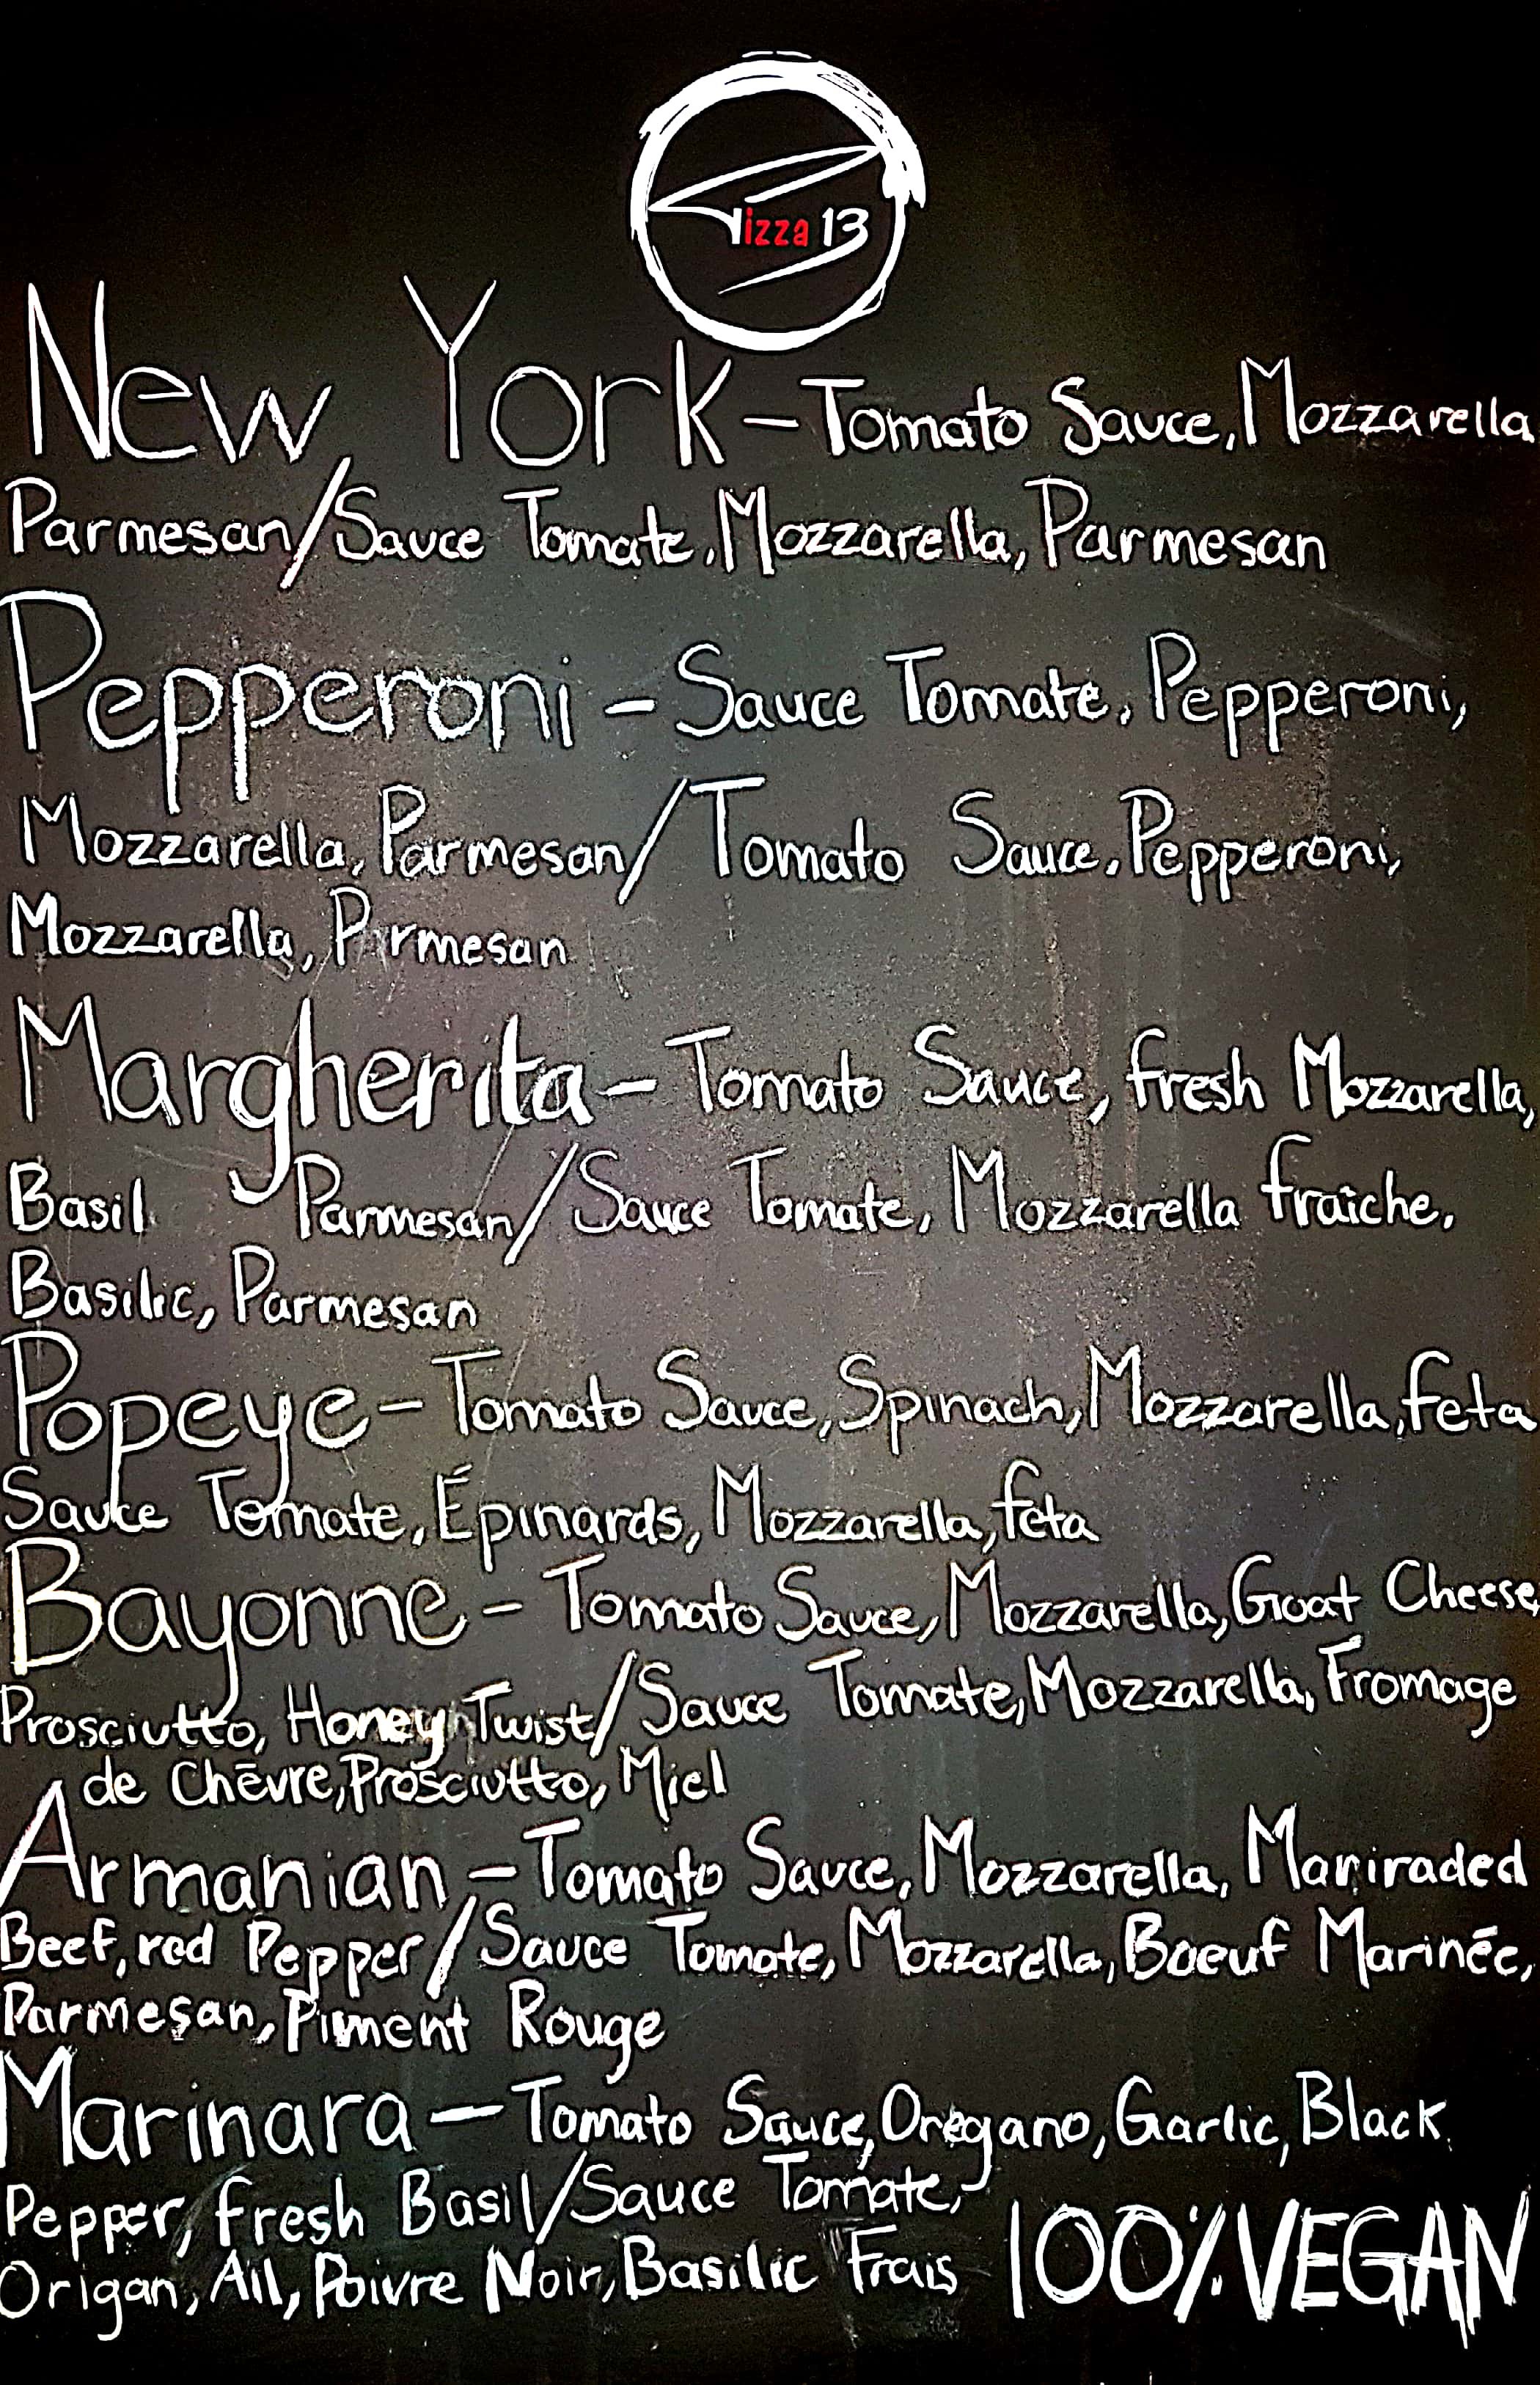 Pizza 13
New York - Tomato Sauce, Mozzarella
Parmesan/Sauce Tomate, Mozzarella, Parmesan
Pepperoni - Sauce Tomate, Pepperoni,
Mozzarella, Parmesan/Tomato Sauce, Pepperoni,
Mozzarella, Parmesan
Margherita - Tomato Sauce, fresh Mozzarella,
Basil Parmesan/Sauce Tomate, Mozzarella fraîche,
Basilic, Parmesan
Popeye - Tomato Sauce, Spinach, Mozzarella, feta
Sauce Tomate, Épinards, Mozzarella, feta
Bayonne - Tomato Sauce, Mozzarella, Goat Cheese,
Prosciutto, Honey Twist/Sauce Tomate, Mozzarella, Fromage
de Chēvre, Prosciutto, Miel
Armanian - Tomato Sauce, Mozzarella, Mariraded
Beef, red Pepper/Sauce Tomate, Mozzarella, Boeuf Marinēe,
Parmesan, Piment Rouge
Marinara - Tomato Sauce, Oregano, Garlic, Black
Pepper, fresh Basil/Sauce Tomate,
Origan, Ail, Poivre Noir, Basilic Frais 100% VEGAN